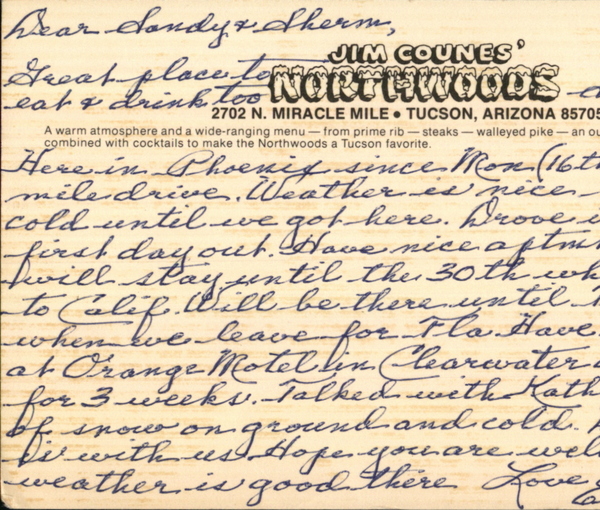 Dear Sandy & Sherm,
JIM COUNES'
Great place to
NORTHWOODS
eat & drink too
2702 N. MIRACLE MILE • TUCSON, ARIZONA 85705
A warm atmosphere and a wide-ranging menu — from prime rib — steaks — walleyed pike — an ou
combined with cocktails to make the Northwoods a Tucson favorite.
Here in Phoenix since Mon (16th
mile drive. Weather is nice
cold until we got here. Drove
first day out. Have nice aptmt
will stay until the 30th wh
to Calif. Will be there until
when we leave for Fla. Have
at Orange Motel in Clearwater
for 3 weeks. Talked with Kath
of snow on ground and cold.
is with us. Hope you are well
weather is good there Love